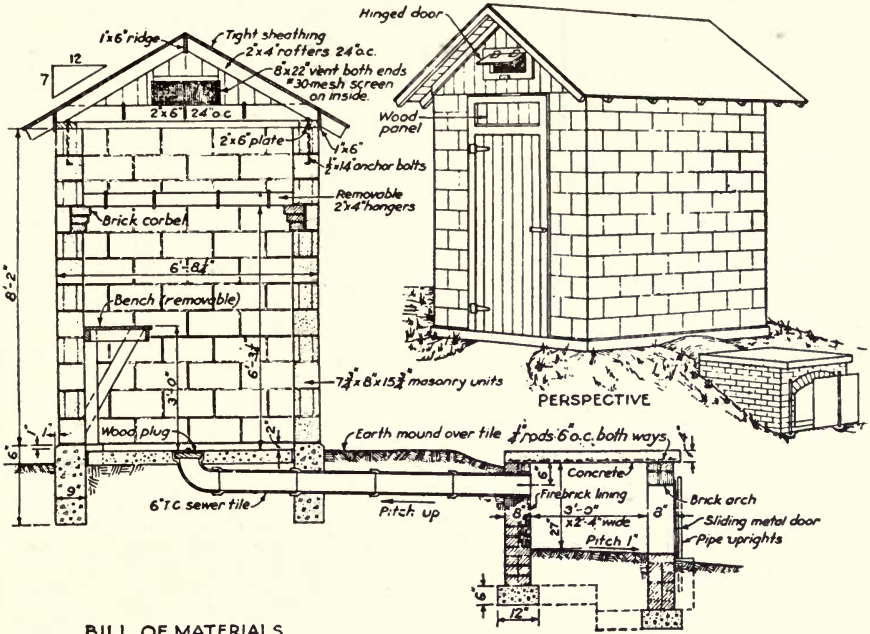 1"x6" ridge
Tight sheathing
2"x4" rafters 24" o.c.
8"x22" vent both ends
#30-mesh screen
on inside.
12
7
2"x6" 24" o.c.
2"x6" plate
1"x6"
½"x14" anchor bolts
Removable
2"x4" hangers
Brick corbel
6'-8½"
8'-2"
Bench (removable)
3'-0"
7¾"x8"x15¾" masonry units
Wood plug
1"
1"
2"
6"
9"
6" T.C. sewer tile
Pitch up
Earth mound over tile
Hinged door
Wood
panel
PERSPECTIVE
rods 6" o.c. both ways
Concrete
6"
Firebrick lining
8"
3'-0"
x2'-4" wide
8"
27"
Pitch 1"
Brick arch
Sliding metal door
Pipe uprights
6"
12"
BILL OF MATERIALS